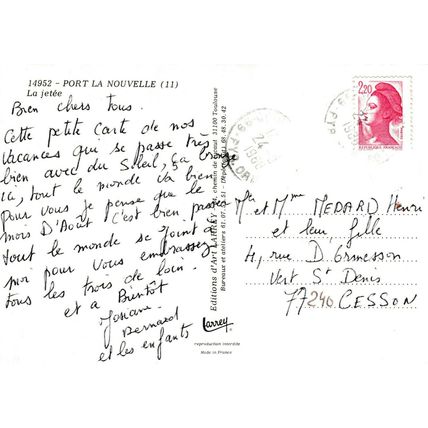 14952 - PORT LA NOUVELLE (11)
La jetée
Bien chers tous.
Cette petite Carte de nos
vacances qui se passe très
bien avec du Soleil, ça bronze
ici, tout le monde va bien
Pour vous je pense que le
mois D'Août c'est bien passé
tout le monde se joint à
moi pour vous embrassez
tous les trois de loin.
et a Bientôt
Josiane
Bernard
et les enfants
Editions d'Art LARREY
31100 Toulouse
Larrey
reproduction interdite
Made in France
2,20
REPUBLIQUE FRANÇAISE
24
Mr et Mme MEDARD Henri
et leur fille
4, rue D'Ormesson
Vert St Denis
77240 CESSON